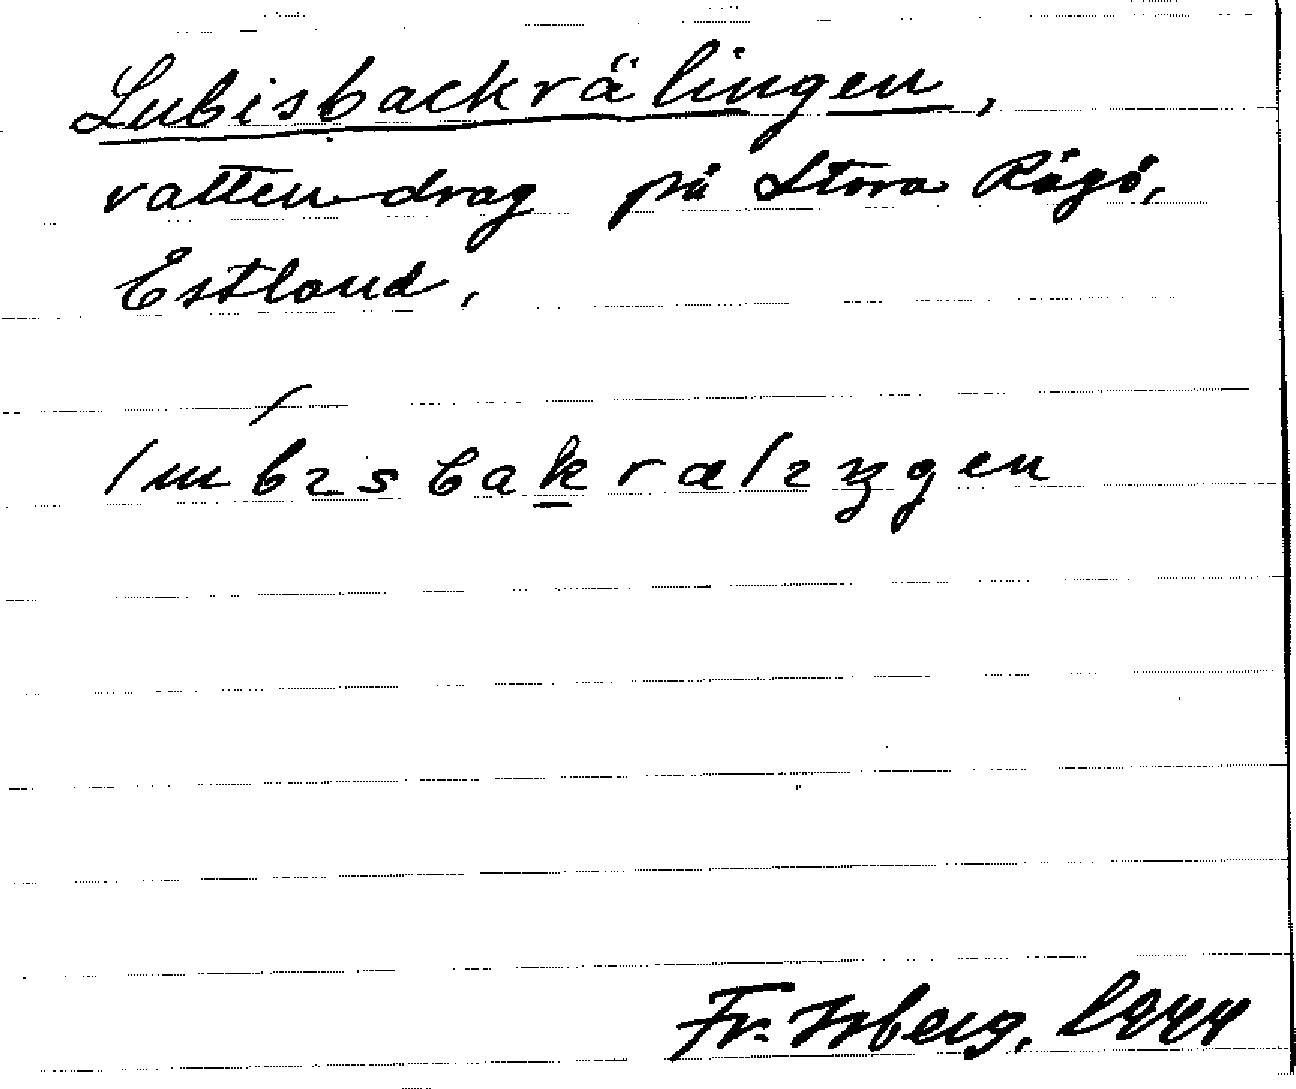 Lubisbackrälingen,
vattendrag på Stora Rågö,
Estland,
lɯbɪsbakrælɪŋgen
Fr. Isberg, 1944